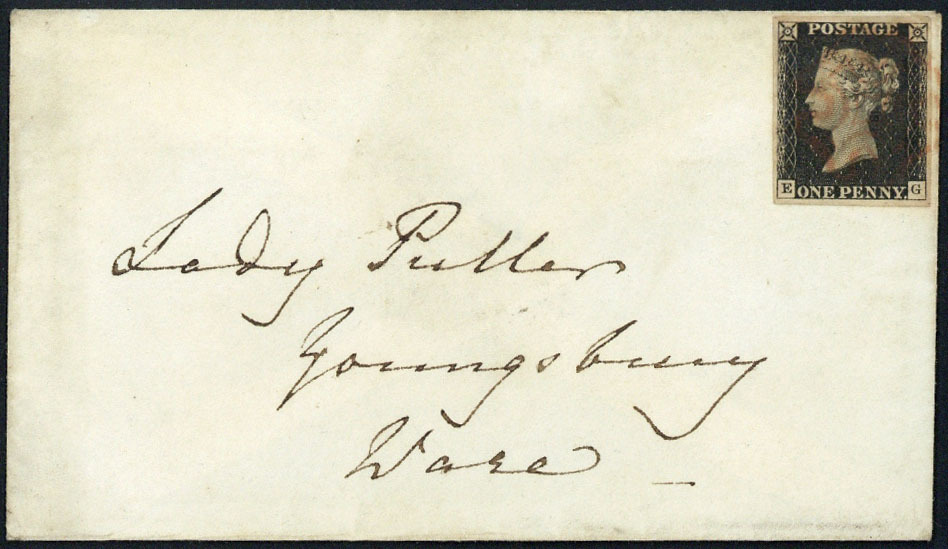 POSTAGE
E ONE PENNY. G
Lady Puller
Youngsbury
Ware